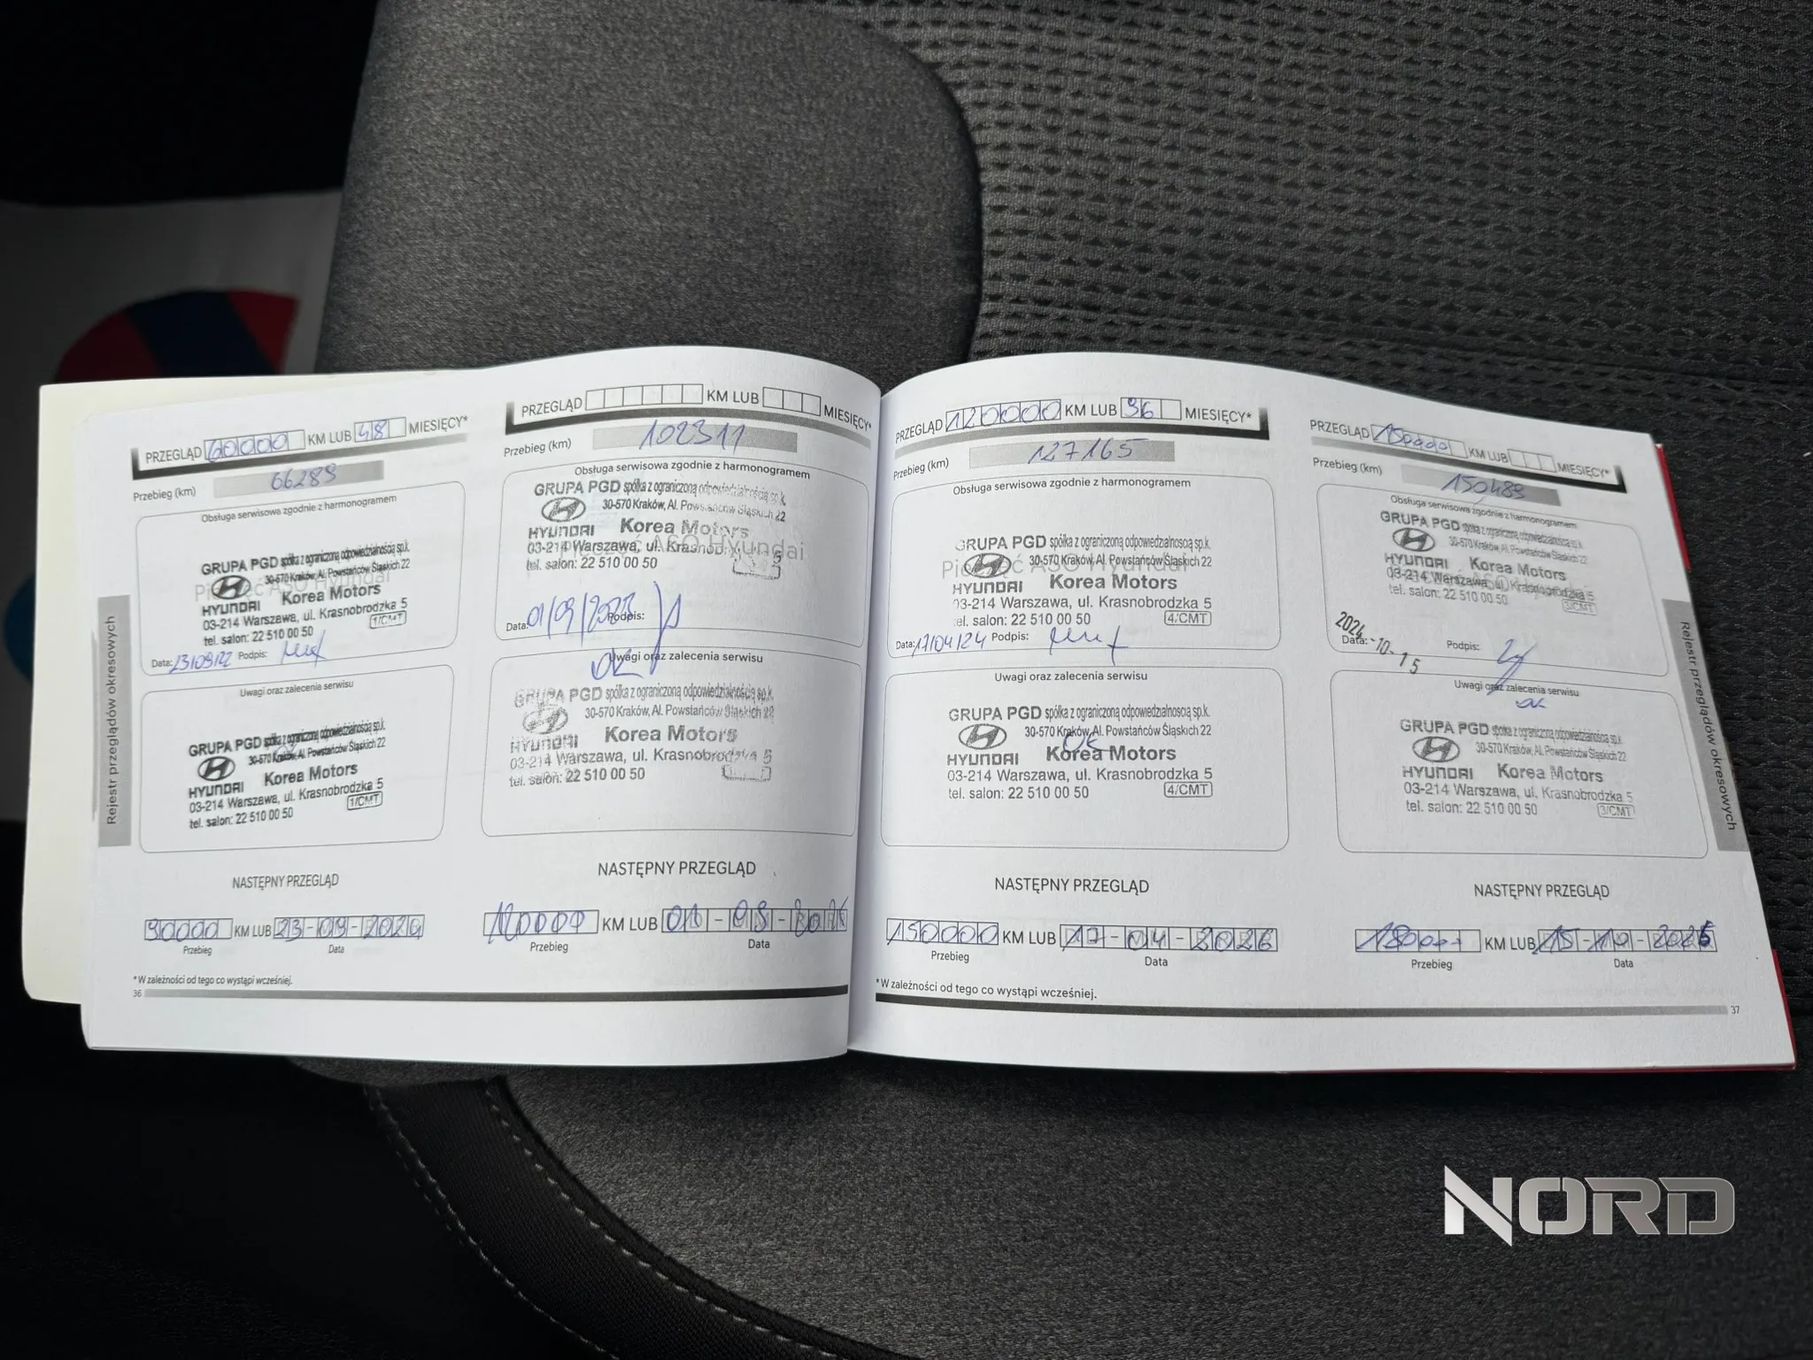 PRZEGLĄD 60000 KM LUB 48 MIESIĘCY*
Przebieg (km) 66289
Obsługa serwisowa zgodnie z harmonogramem
GRUPA PGD spółka z ograniczoną odpowiedzialnością sp.k.
30-570 Kraków, Al. Powstańców Śląskich 22
HYUNDAI Korea Motors
03-214 Warszawa, ul. Krasnobrodzka 5
tel. salon: 22 510 00 50 1/CMT
Data: 23/09/22 Podpis:
Uwagi oraz zalecenia serwisu
GRUPA PGD spółka z ograniczoną odpowiedzialnością sp.k.
30-570 Kraków, Al. Powstańców Śląskich 22
HYUNDAI Korea Motors
03-214 Warszawa, ul. Krasnobrodzka 5
tel. salon: 22 510 00 50 1/CMT
NASTĘPNY PRZEGLĄD
90000 KM LUB 23-09-2024
Przebieg Data
*W zależności od tego co wystąpi wcześniej.
36
Rejestr przeglądów okresowych
PRZEGLĄD KM LUB MIESIĘCY*
Przebieg (km) 102311
Obsługa serwisowa zgodnie z harmonogramem
GRUPA PGD spółka z ograniczoną odpowiedzialnością sp.k.
30-570 Kraków, Al. Powstańców Śląskich 22
HYUNDAI Korea Motors
Pieczęć ASO Hyundai
03-214 Warszawa, ul. Krasnobrodzka 5
tel. salon: 22 510 00 50
Data: 01/09/2023 Podpis:
OK
Uwagi oraz zalecenia serwisu
GRUPA PGD spółka z ograniczoną odpowiedzialnością sp.k.
30-570 Kraków, Al. Powstańców Śląskich 22
HYUNDAI Korea Motors
03-214 Warszawa, ul. Krasnobrodzka 5
tel. salon: 22 510 00 50
NASTĘPNY PRZEGLĄD
120000 KM LUB 01-09-
Przebieg Data
PRZEGLĄD 120000 KM LUB 96 MIESIĘCY*
Przebieg (km) 127165
Obsługa serwisowa zgodnie z harmonogramem
GRUPA PGD spółka z ograniczoną odpowiedzialnością sp.k.
30-570 Kraków, Al. Powstańców Śląskich 22
Korea Motors
03-214 Warszawa, ul. Krasnobrodzka 5
tel. salon: 22 510 00 50 4/CMT
Data: 17/04/24 Podpis:
Uwagi oraz zalecenia serwisu
GRUPA PGD spółka z ograniczoną odpowiedzialnością sp.k.
30-570 Kraków, Al. Powstańców Śląskich 22
OK
HYUNDAI Korea Motors
03-214 Warszawa, ul. Krasnobrodzka 5
tel. salon: 22 510 00 50 4/CMT
NASTĘPNY PRZEGLĄD
150000 KM LUB 17-04-2026
Przebieg Data
*W zależności od tego co wystąpi wcześniej.
PRZEGLĄD 150000 KM LUB MIESIĘCY*
Przebieg (km) 150489
Obsługa serwisowa zgodnie z harmonogramem
GRUPA PGD spółka z ograniczoną odpowiedzialnością sp.k.
30-570 Kraków, Al. Powstańców Śląskich 22
HYUNDAI Korea Motors
03-214 Warszawa, ul. Krasnobrodzka 5
tel. salon: 22 510 00 50 3/CMT
2024-10-15
Data: Podpis:
Uwagi oraz zalecenia serwisu
OK
GRUPA PGD spółka z ograniczoną odpowiedzialnością sp.k.
30-570 Kraków, Al. Powstańców Śląskich 22
HYUNDAI Korea Motors
03-214 Warszawa, ul. Krasnobrodzka 5
tel. salon: 22 510 00 50 3/CMT
NASTĘPNY PRZEGLĄD
KM LUB 15-10-2026
Przebieg Data
37
Rejestr przeglądów okresowych
NORD